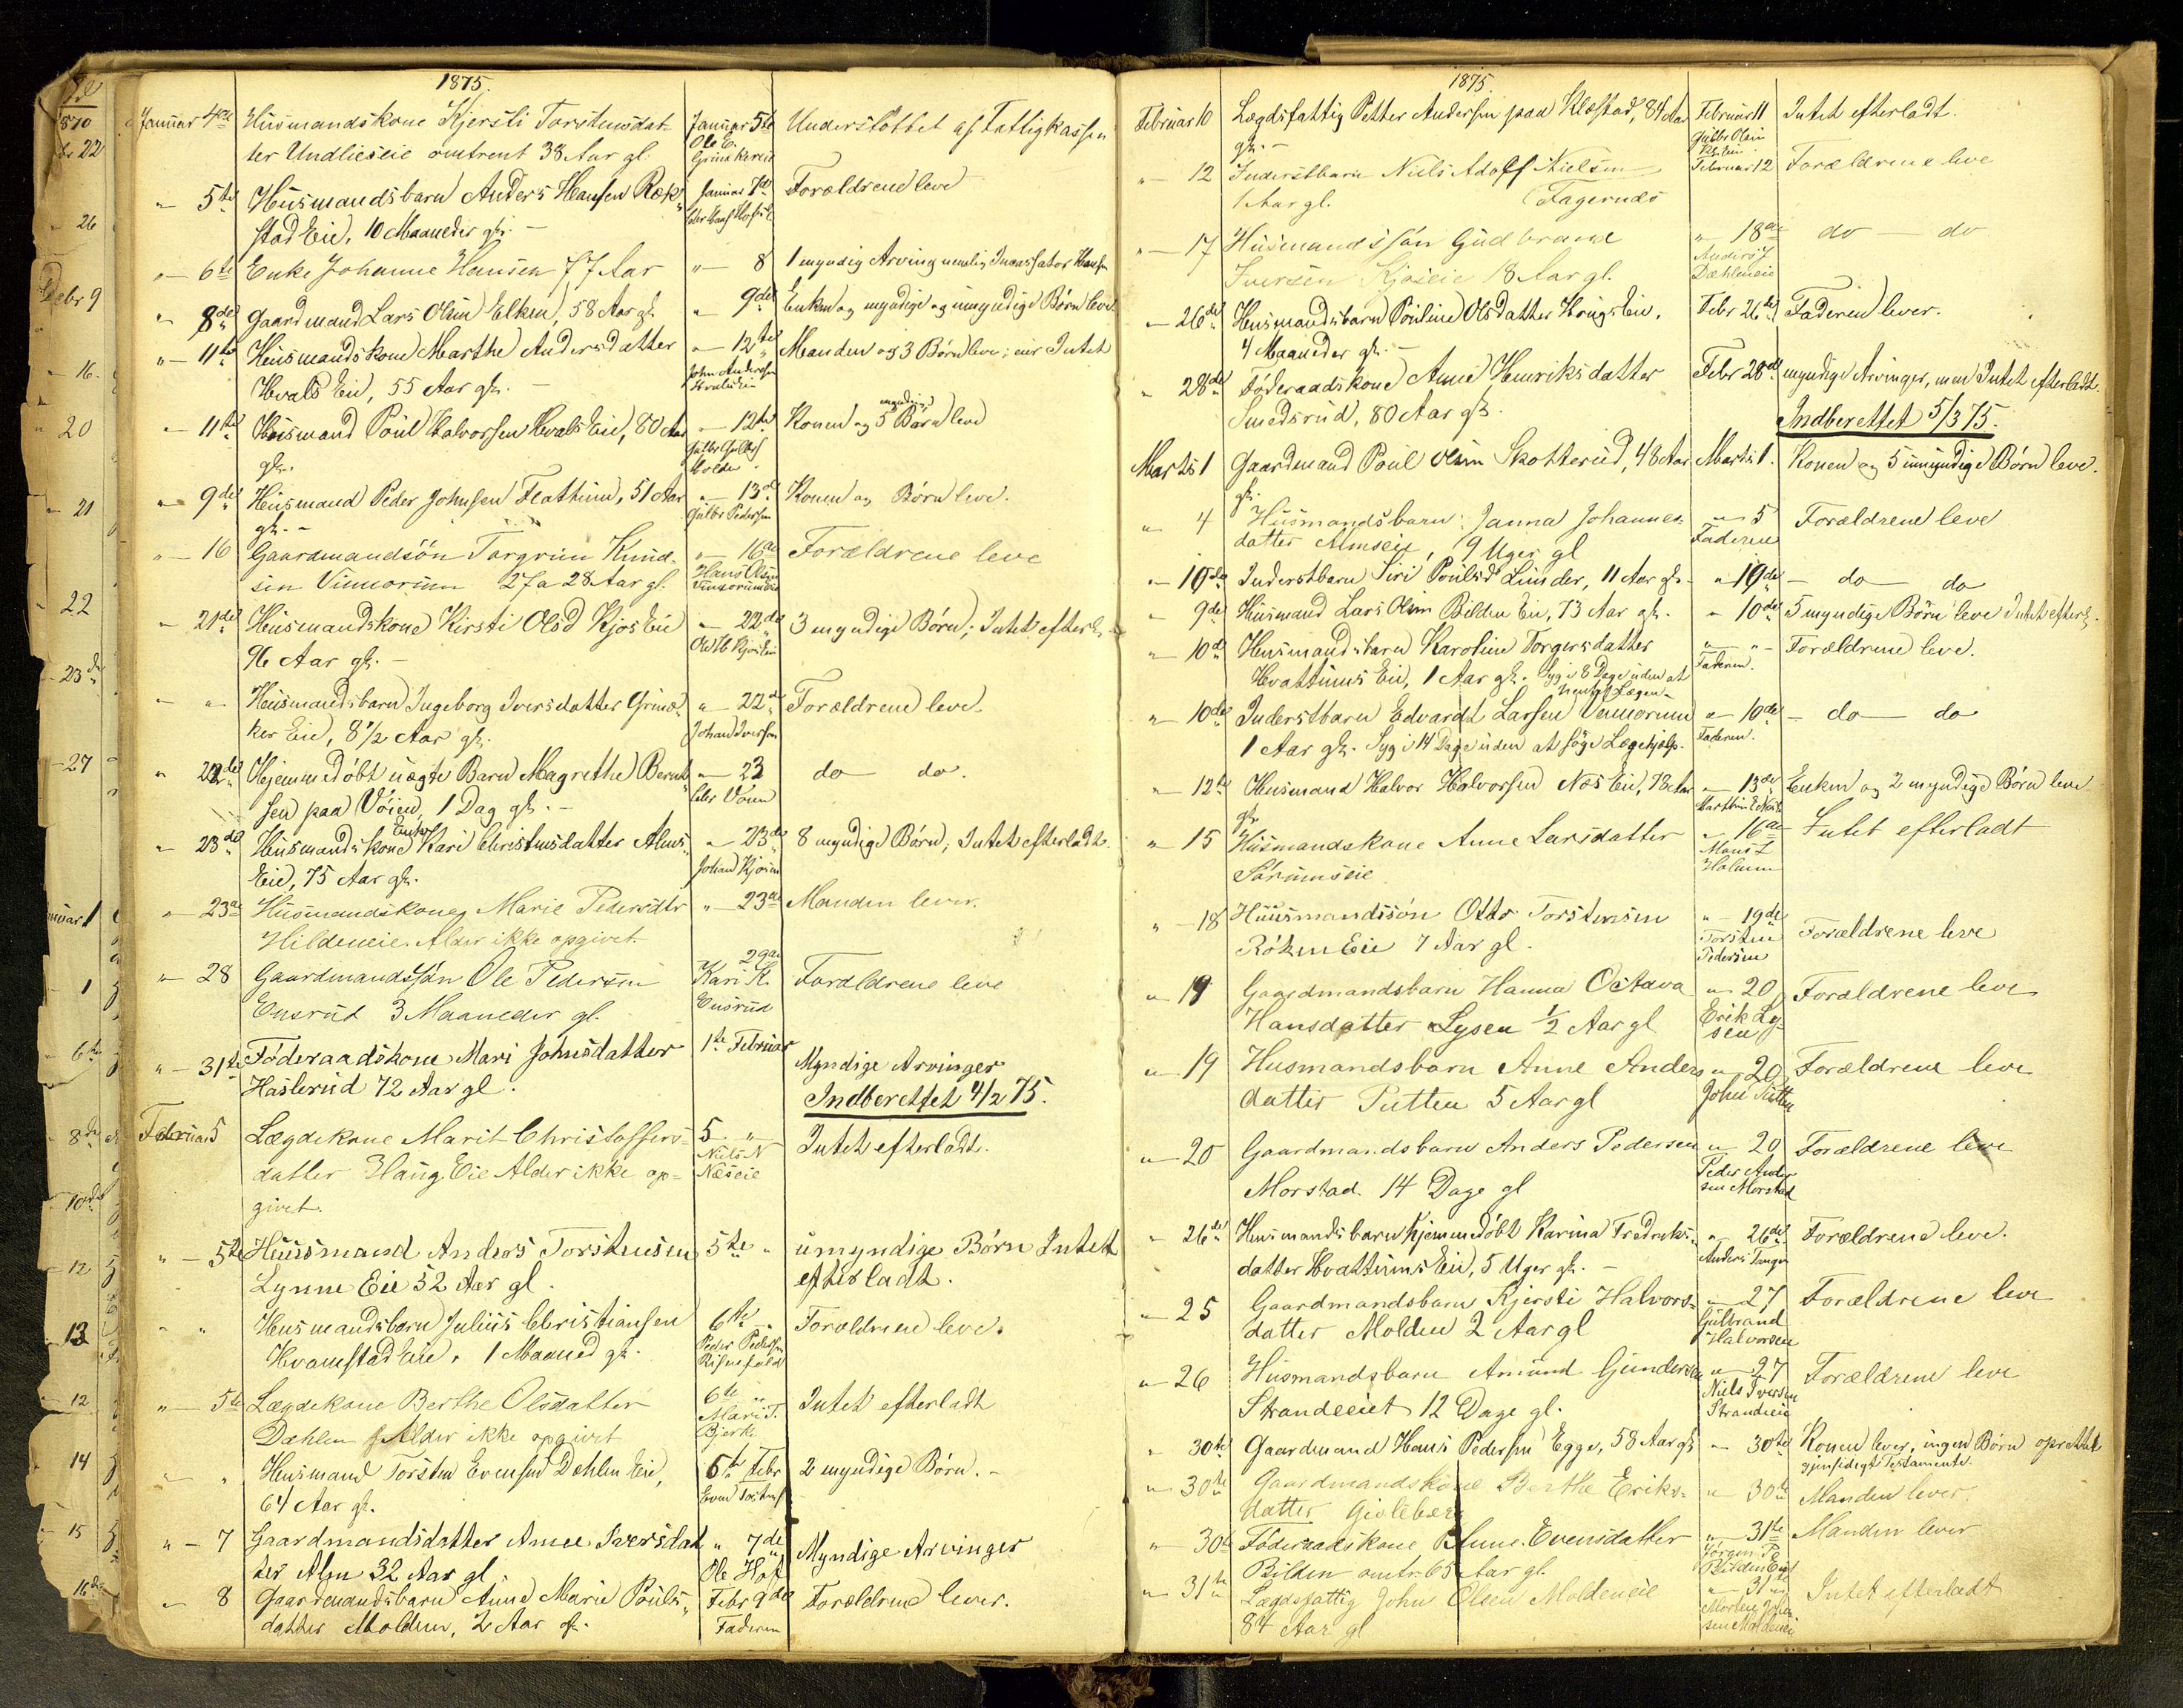 1875.
Januar 4de Husmandskone Kjersti Torstensdat- Januar 5te Understøttet af Fattigkassen
ter Undlieseie omtrent 38 Aar gl. Ole E. Grinakereie
" 5te Husmandsbarn Anders Hansen Røk- Januar 7de Forældrene leve
stad Eie, 10 Maaneder gl. -
" 6te Enke Johanne Hansen 77 Aar " 8 1 myndig Arving nemlig Incassator Hansen
" 8de Gaardmand Lars Olsen Elken, 58 Aar gl. " 9de Enken og myndige og umyndige Børn leve
" 11te Husmandskone Marthe Andersdatter " 12te Manden og 3 Børn leve; eier Intet
Hvals Eie, 55 Aar gl. - John Andersen Hvalseie
" 11te Husmand Poul Halvorsen Hvals Eie, 80 Aar " 12te Konen og 5 myndige Børn leve
gl.
" 9de Husmand Peder Johnsen Flattum, 51 Aar " 13de Konen og Børn leve.
gl. - Gulbr Pedersen
" 16 Gaardmandsøn Torgrim Knud- " 16de Forældrene leve
sen Vimorum 27 a 28 Aar gl. Hans Olsen
" 21de Husmandskone Kirsti Olsd Kjos Eie " 22de 3 myndige Børn; Intet efterl.
96 Aar gl. -
" " Husmandsbarn Ingeborg Iversdatter Grina- " 22de Forældrene leve.
ker Eie, 8 1/2 Aar gl. Johan Iversen
" 22de Hjemmedøbt uægte Barn Magrethe Bernt- " 23 do do.
sen paa Vöien, 1 Dag gl. -
" 23de Husmandskone Enke Kari Christensdatter Alms " 23de 8 myndige Børn, Intet efterladt.
Eie, 75 Aar gl. Johan Kjösen
" 23de Husmandskone Marie Pedersdtr " 23de Manden lever.
Hildeneie. Alder ikke opgivet.
" 28 Gaardmandssøn Ole Pedersen 29de Kari K. Forældrene leve
Ensrud 3 Maaneder gl. Ensrud
" 31te Føderaadskone Mari Johnsdatter 1te Februar Myndige Arvinger
Haslerud 72 Aar gl. Indberettet 4/2 75.
Februar 5 Lægdekone Marit Christoffers- 5 " Intet efterladt.
datter Haug Eie Alder ikke op- Niels N Næseie
givet.
" 5te Huusmand Anders Torstensen 5te " umyndige Børn Intet
Lynne Eie 52 Aar gl. efterladt.
" " Husmandsbarn Julius Christiansen 6te " Forældrene leve.
Hvamstad Eie, 1 Maaned gl. Peder Pedersen
" 5te Lægdekone Berthe Olsdatter 6te " Intet efterladt
Dæhlen Alder ikke opgivet Mari T. Bjerke
" " Husmand Torsten Evensen Dæhlen Eie, 6te Febr 2 myndige Børn. -
64 Aar gl.
" 7 Gaardmandsdatter Anne Iversdat " 7de Myndige Arvinger
ter Alm 32 Aar gl. Ole Hof
" 8 Gaardmandsbarn Anne Marie Pouls- Febr 9de Forældrene lever.
datter Molden, 2 Aar gl. Faderen
1875.
Februar 10 Lægdsfattig Petter Andersen paa Klæstad, 84 Aar Februar 11 Intet efterladt.
gl. - Gulbr Olsen
" 12 Inderstbarn Niels Adolf Nielsen Februar 12 Forældrene leve
1 Aar gl. Fagernæs
" 17 Husmandssøn Gudbrand " 18de do - do
Iversen Kjoseie 18 Aar gl. Anders J Dæhleneie
" 26de Husmandsbarn Pouline Olsdatter Haugs Eie, Febr 26de Faderen lever.
4 Maaneder gl. -
" 28de Føderaadskone Anne Henriksdatter Febr 28de myndige Arvinger, men Intet efterladt.
Smedsrud, 80 Aar gl. Indberettet 5/3 75.
Marts 1 Gaardmand Poul Olsen Skotterud, 48 Aar Marts 1. Konen og 5 umyndige Børn leve.
gl.
" 4 Husmandsbarn Janna Johannes- " 5 Forældrene leve
datter Almseie, 9 Uger gl Faderen
" 10de Inderstbarn Siri Poulsd Lunder, 11 Aar gl. " 10de - do do
" 9de Husmand Lars Olsen Bilden Eie, 73 Aar gl. " 10de 5 myndige Børn leve Intet efterl.
" 10de Husmandsbarn Karoline Torgersdatter " " - Forældrene leve.
Hvattums Eie, 1 Aar gl. Syg i 8 Dage uden at Faderen.
hentet Lægen -
" 10de Inderstbarn Edvardt Larsen Vimorum " 10de - do do
1 Aar gl. Syg i 14 Dage uden at søge Lægehjælp. Faderen.
" 12te Husmand Halvor Halvorsen Næs Eie, 73 Aar " 13de Enken og 2 myndige Børn leve
gl.
" 15 Husmandskone Anne Larsdatter " 16de Intet efterladt
Sørumseie Mons L Holmen
" 18 Huusmandssøn Otto Torstensen " 19de Forældrene leve
Røken Eie 7 Aar gl. Torsten Pedersen
" 19 Gaardmandsbarn Hanna Octava " 20 Forældrene leve
Hansdatter Lysen 1/2 Aar gl Erik Ly- sen
" 19 Husmandsbarn Anne Anders " 20 Forældrene leve
datter Putten 5 Aar gl John Putten
" 20 Gaardmandsbarn Anders Pedersen " 20 Forældrene leve
Morstad 14 Dage gl Peder Ander sen Morstad
" 26de Husmandsbarn hjemmedöbt Karina Fredriks- " 26de Forældrene leve.
datter Hvattums Eie, 5 Uger gl. - Anders Tangen
" 25 Gaardmandsbarn Kjersti Halvors- " 27 Forældrene leve
datter Molden 2 Aar gl Gulbrand Halvorsen
" 26 Husmandsbarn Amund Gundersen " 27 Forældrene leve
Strandeeiet 12 Dage gl. Niels Iversen Strandeeie
" 30te Gaardmand Hans Pedersen Egge, 58 Aar gl. " 30te Konen lever, ingen Børn oprettet
gjensidigt Testamente.
" 30te Gaardmandskone Berthe Eriks- " 30te Manden lever.
datter Gisleberg
" 30te Føderaadskone Anne Evensdatter " 31te Manden lever
Bilden omtr. 65 Aar gl. Jörgen P. Bilden Eie
" 31te Lægdsfattig John Olsen Moldeneie " 31te Intet efterladt
84 Aar gl Morten John sen Moldeneie